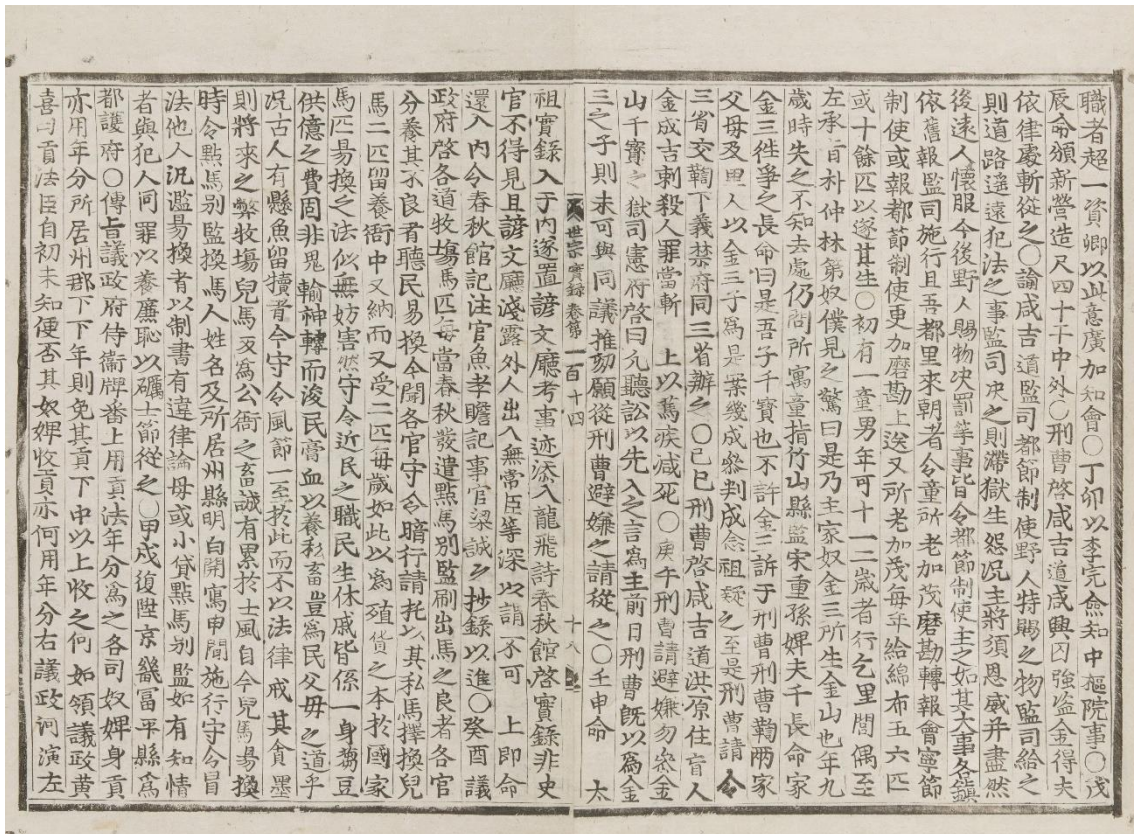 職者超一資卿以此意廣加知會○丁卯以李亮僉知中樞院事○戊
辰命頒新營造尺四十于中外○刑曹啓咸吉道咸興囚強盜金得夫
依律處斬從之○諭咸吉道監司都節制使野人特賜之物監司給之
則道路遙遠犯法之事監司決之則滯獄生怨況主將須恩威并盡然
後遠人懷服今後野人賜物決罰等事皆令都節制使主之如其大事各鎭
依舊報監司施行且吾都里來朝者令童所老加茂磨勘轉報會寧節
制使或報都節制使更加磨勘上送又所老加茂每年給綿布五六匹
或十餘匹以遂其生○初有一童男年可十一二歲者行乞里閭偶至
左承旨朴仲林第奴僕見之驚曰是乃主家奴金三所生金山也年九
歲時失之不知去處仍問所寓童指竹山縣監宋重孫婢夫千長命家
金三徃爭之長命曰是吾子千寶也不許金三訴于刑曹刑曹鞫兩家
父母及里人以金三子爲是案幾成叅判成念祖疑之至是刑曹請令
三省交鞫下義禁府同三省辦之○己巳刑曹啓咸吉道洪原住盲人
金成吉刺殺人罪當斬 上以篤疾減死○庚午刑曹請避嫌勿叅金
山千寶之獄司憲府啓曰凡聽訟以先入之言爲主前日刑曹旣以爲金
三之子則未可與同議推劾願從刑曹避嫌之請從之○壬申命 太
世宗實錄卷第一百十四 十八
祖實錄入于內遂置諺文廳考事迹添入龍飛詩春秋館啓實錄非史
官不得見且諺文廳淺露外人出入無常臣等深以謂不可 上卽命
還入內令春秋館記注官魚孝瞻記事官梁誠之抄錄以進○癸酉議
政府啓各道牧場馬匹每當春秋發遣點馬別監刷出馬之良者各官
分養其不良者聽民易換今聞各官守令暗行請托以其私馬擇換兒
馬二匹留養衙中又納而又受二匹每歲如此以爲殖貨之本於國家
馬匹易換之法似無妨害然守令近民之職民生休戚皆係一身芻豆
供億之費固非鬼輸神轉而浚民膏血以養私畜豈爲民父母之道乎
況古人有懸魚留犢者今守令風節一至於此而不以法律戒其貪墨
則將來之弊牧場兒馬反爲公衙之畜誠有累於士風自今兒馬易換
時令點馬別監換馬人姓名及所居州縣明白開寫申聞施行守令冒
法他人汎濫易換者以制書有違律論毋或小貸點馬別監如有知情
者與犯人同罪以養廉恥以礪士節從之○甲戌復陞京畿富平縣爲
都護府○傳旨議政府侍衛牌番上用貢法年分爲之各司奴婢身貢
亦用年分所居州郡下下年則免其貢下中以上收之何如領議政黃
喜曰貢法臣自初未知便否其奴婢收貢亦何用年分右議政河演左